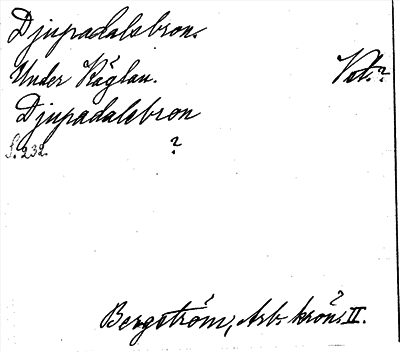 Djupadalsbron.
Under Räglan. Vet.?
Djupadalsbron
S. 232. ?
Bergström, Arb. krön. II.